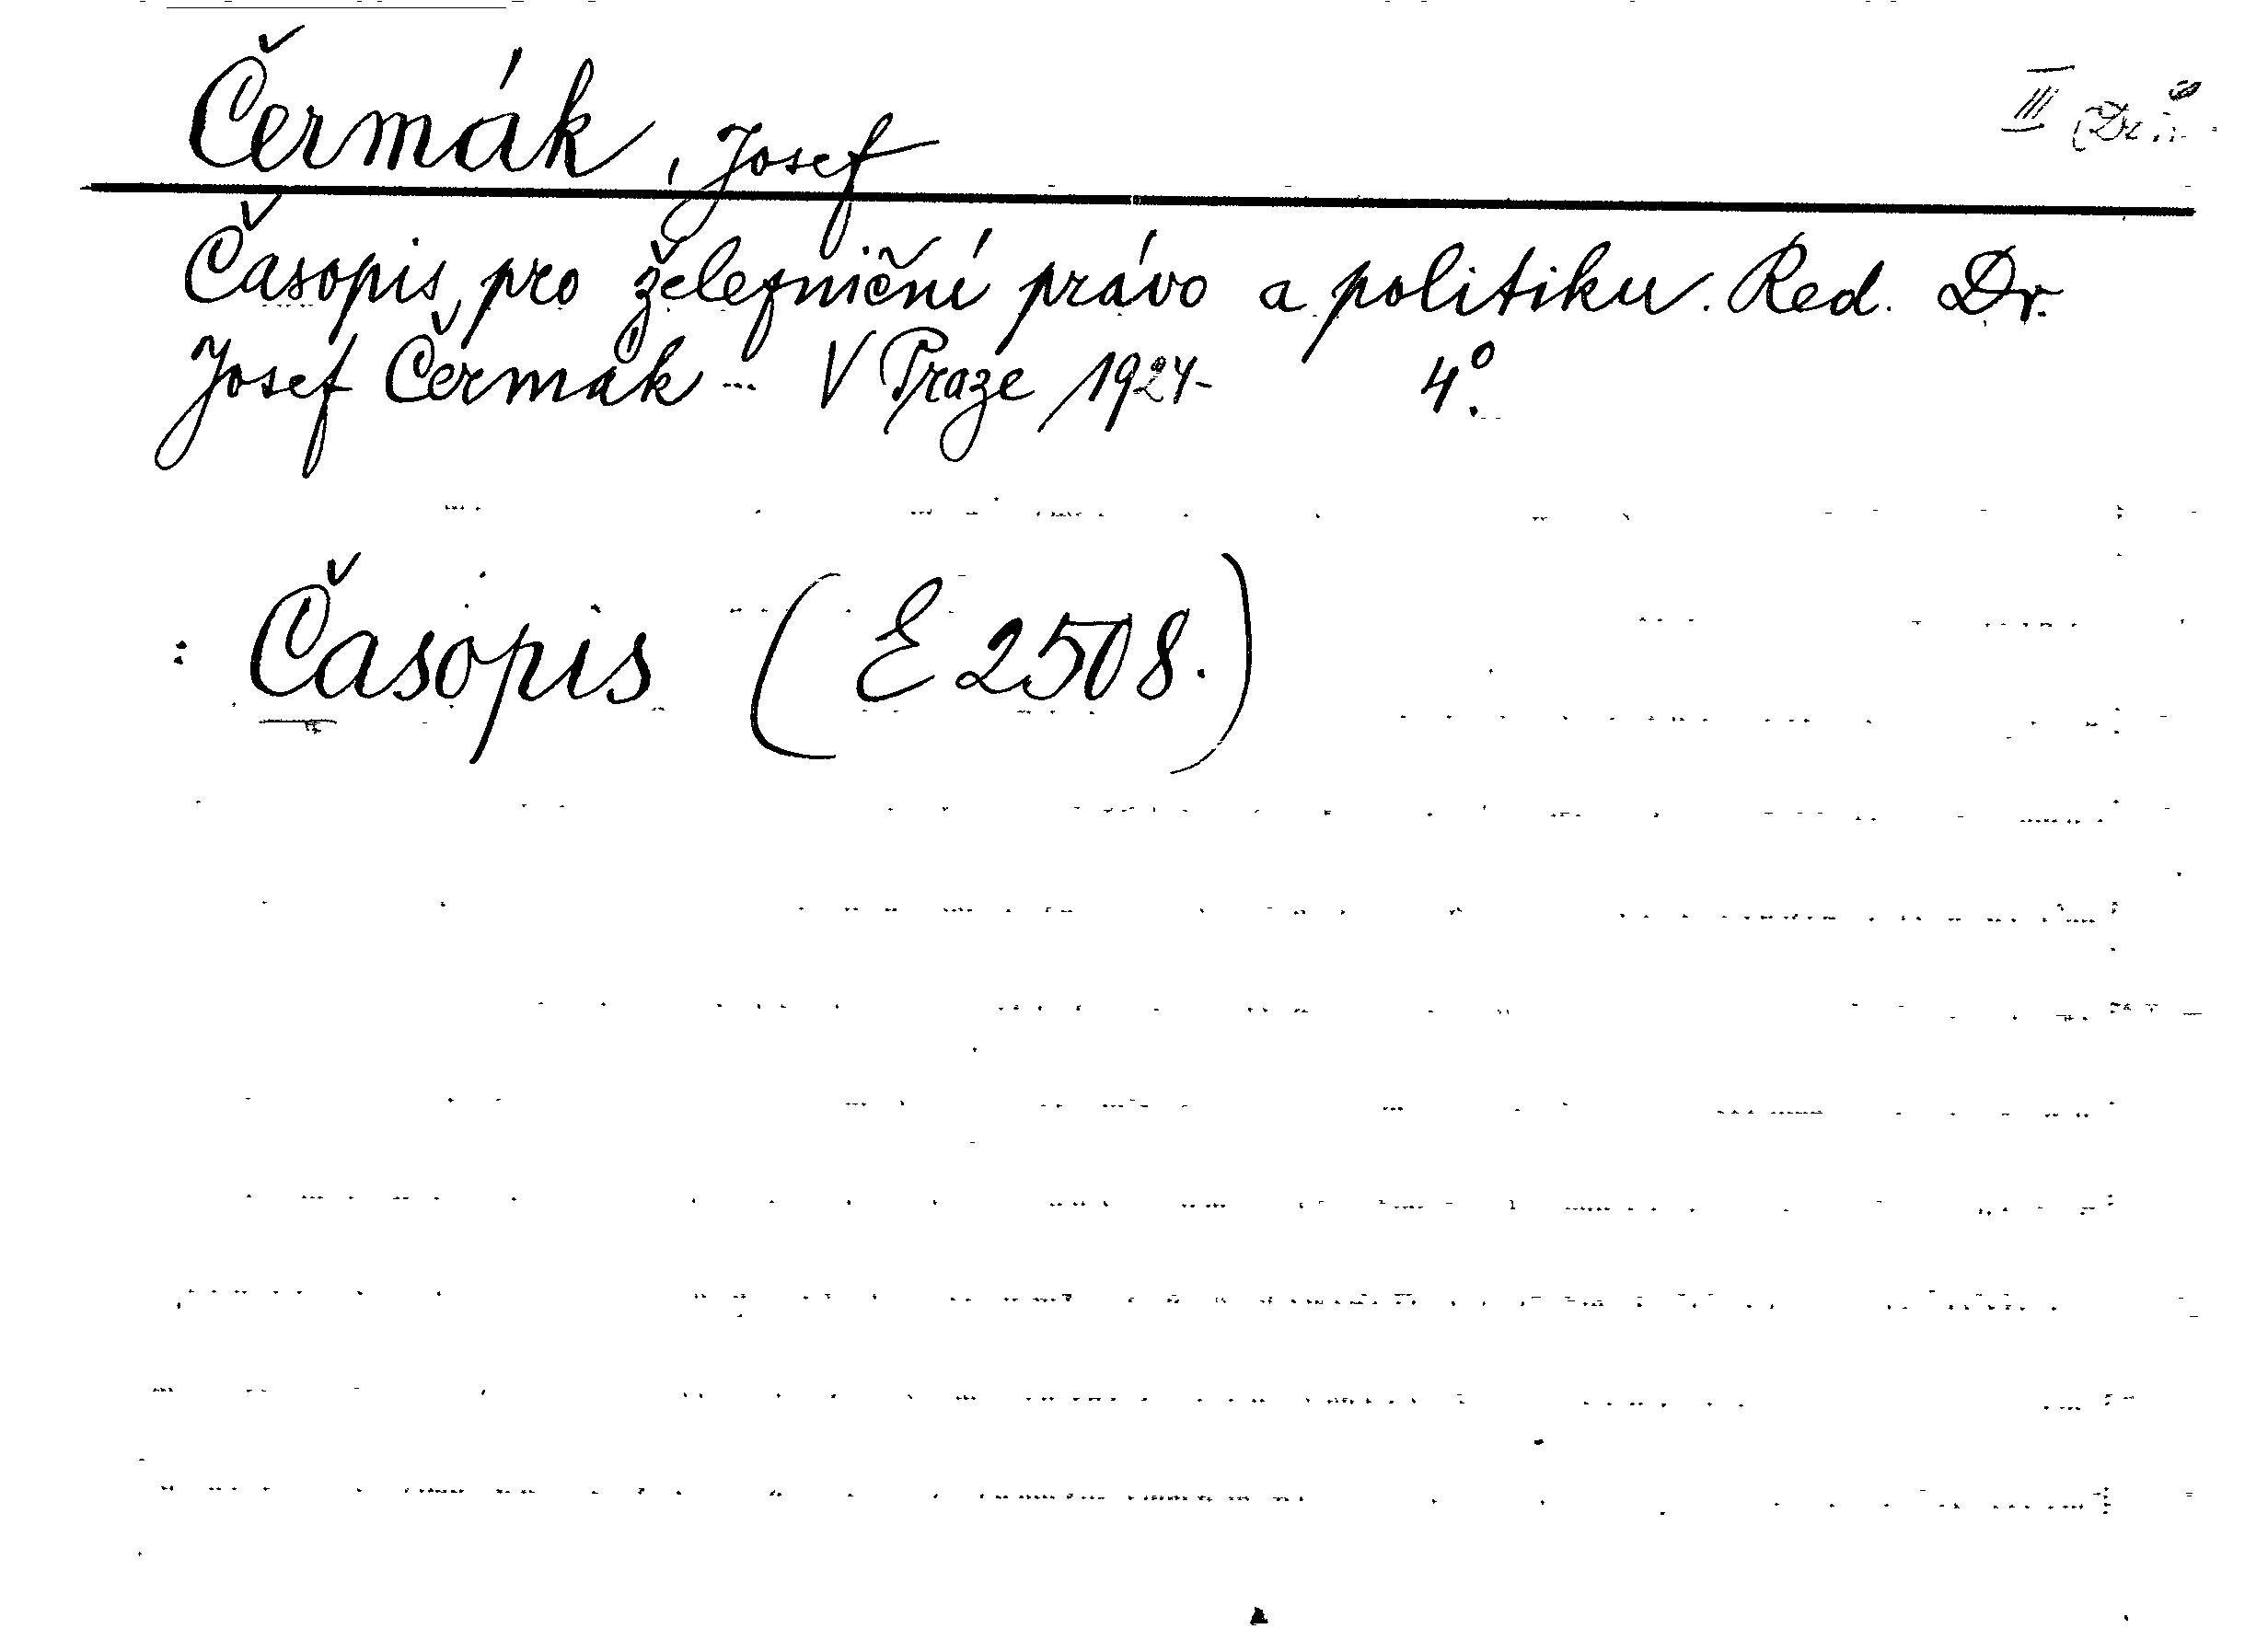 Čermák, Josef
III
Časopis pro železniční právo a politiku. Red. Dr.
Josef Čermák – V Praze 1924- 4°.
: Časopis (E 2508.)